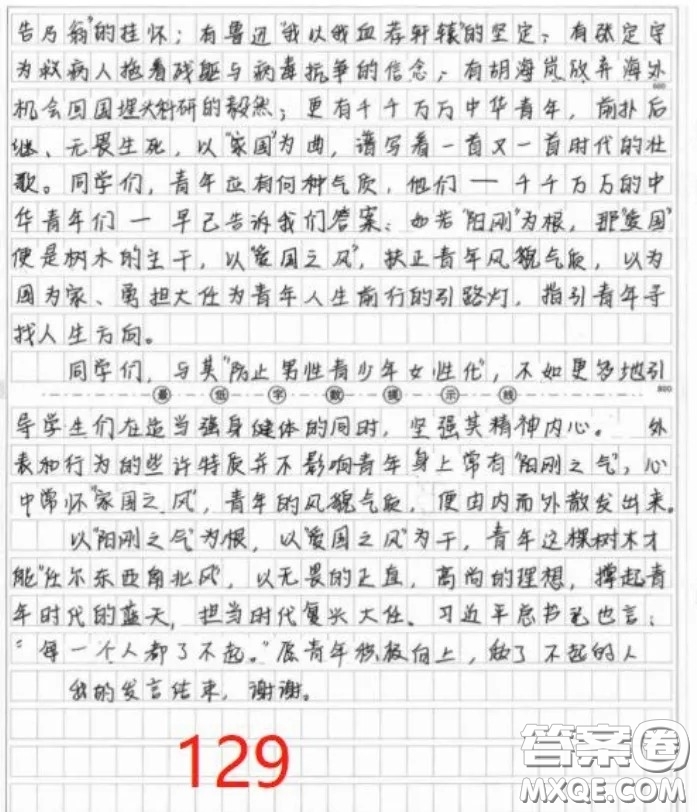 告乃翁"的挂怀；有鲁迅"我以我血荐轩辕"的坚定；有张定宇
为救病人拖着残躯与病毒抗争的信念；有胡海岚放弃海外
600
机会回国埋头科研的毅然；更有千千万万中华青年，前扑后
继、无畏生死，以"家国"为曲，谱写着一首又一首时代的壮
歌。同学们，青年应有何种气质，他们——千千万万的中
华青年们一早已告诉我们答案：如若"阳刚"为根，那"爱国"
便是树木的主干，以"爱国之风"，扶正青年风貌气质，以为
国为家、勇担大任为青年人生前行的引路灯，指引青年寻
找人生方向。
同学们，与其"防止男性青少年女性化"，不如更多地引
最低字数提示线
800
导学生们在适当强身健体的同时，坚强其精神内心。外
表和行为的些许特质并不影响青年身上常有"阳刚之气"，心
中常怀"家国之风"，青年的风貌气质，便由内而外散发出来。
以"阳刚之气"为根，以"爱国之风"为干，青年这棵树木才
能"任尔东西南北风"，以无畏的正直，高尚的理想，撑起青
年时代的蓝天，担当时代复兴大任。习近平总书记也言：
"每一个人都了不起。"愿青年积极向上，做了不起的人
我的发言结束，谢谢。
129
答案圈
MXQE.COM